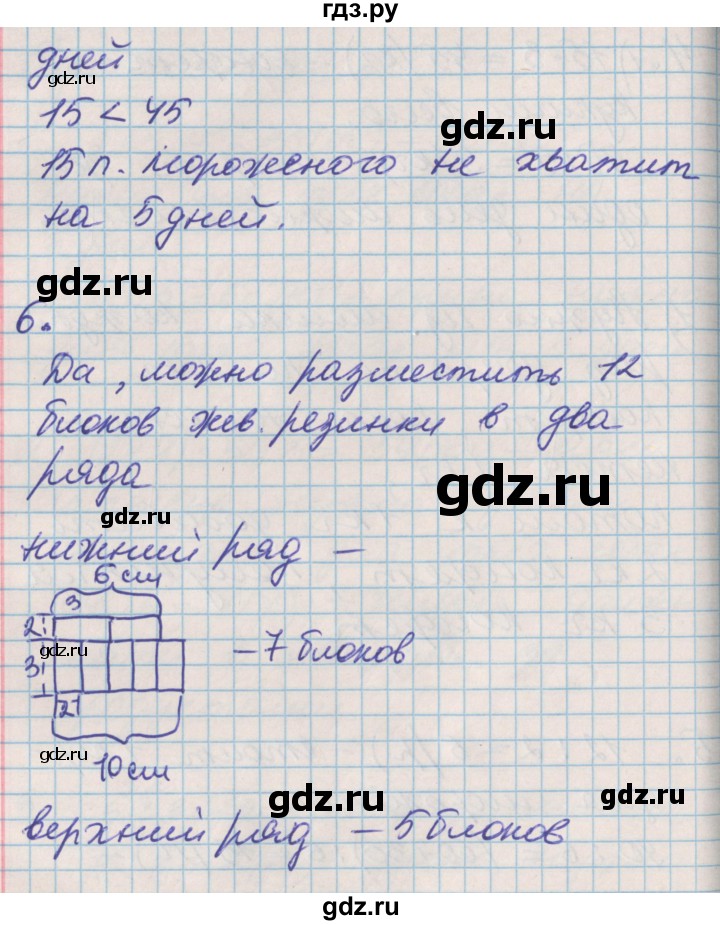 гдз.ру
дней
gdz.ru
15 < 45
gdz.ru
15 п. мороженого не хватит
на 5 дней.
gdz.ru
6.
Да, можно разместить 12
блоков жев. резинки в два
ряда
gdz.ru
gdz.ru
нижний ряд –
6 см
3
2
gdz.ru
3
– 7 блоков
2
gdz.ru
10 см
gdz.ru
gdz.ru
верхний ряд – 5 блоков
gdz.ru